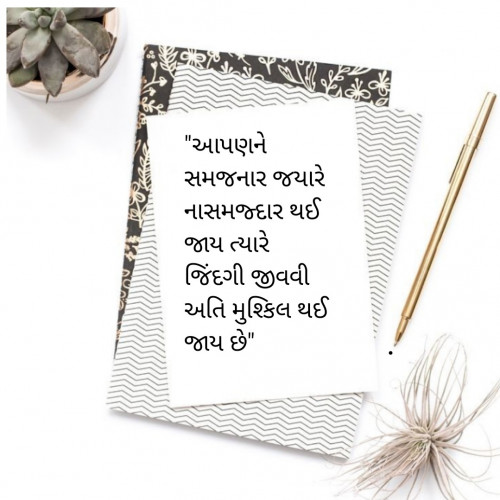 "આપણને
સમજનાર જયારે
નાસમજ્દાર થઈ
જાય ત્યારે
જિંદગી જીવવી
અતિ મુશ્કિલ થઈ
જાય છે"